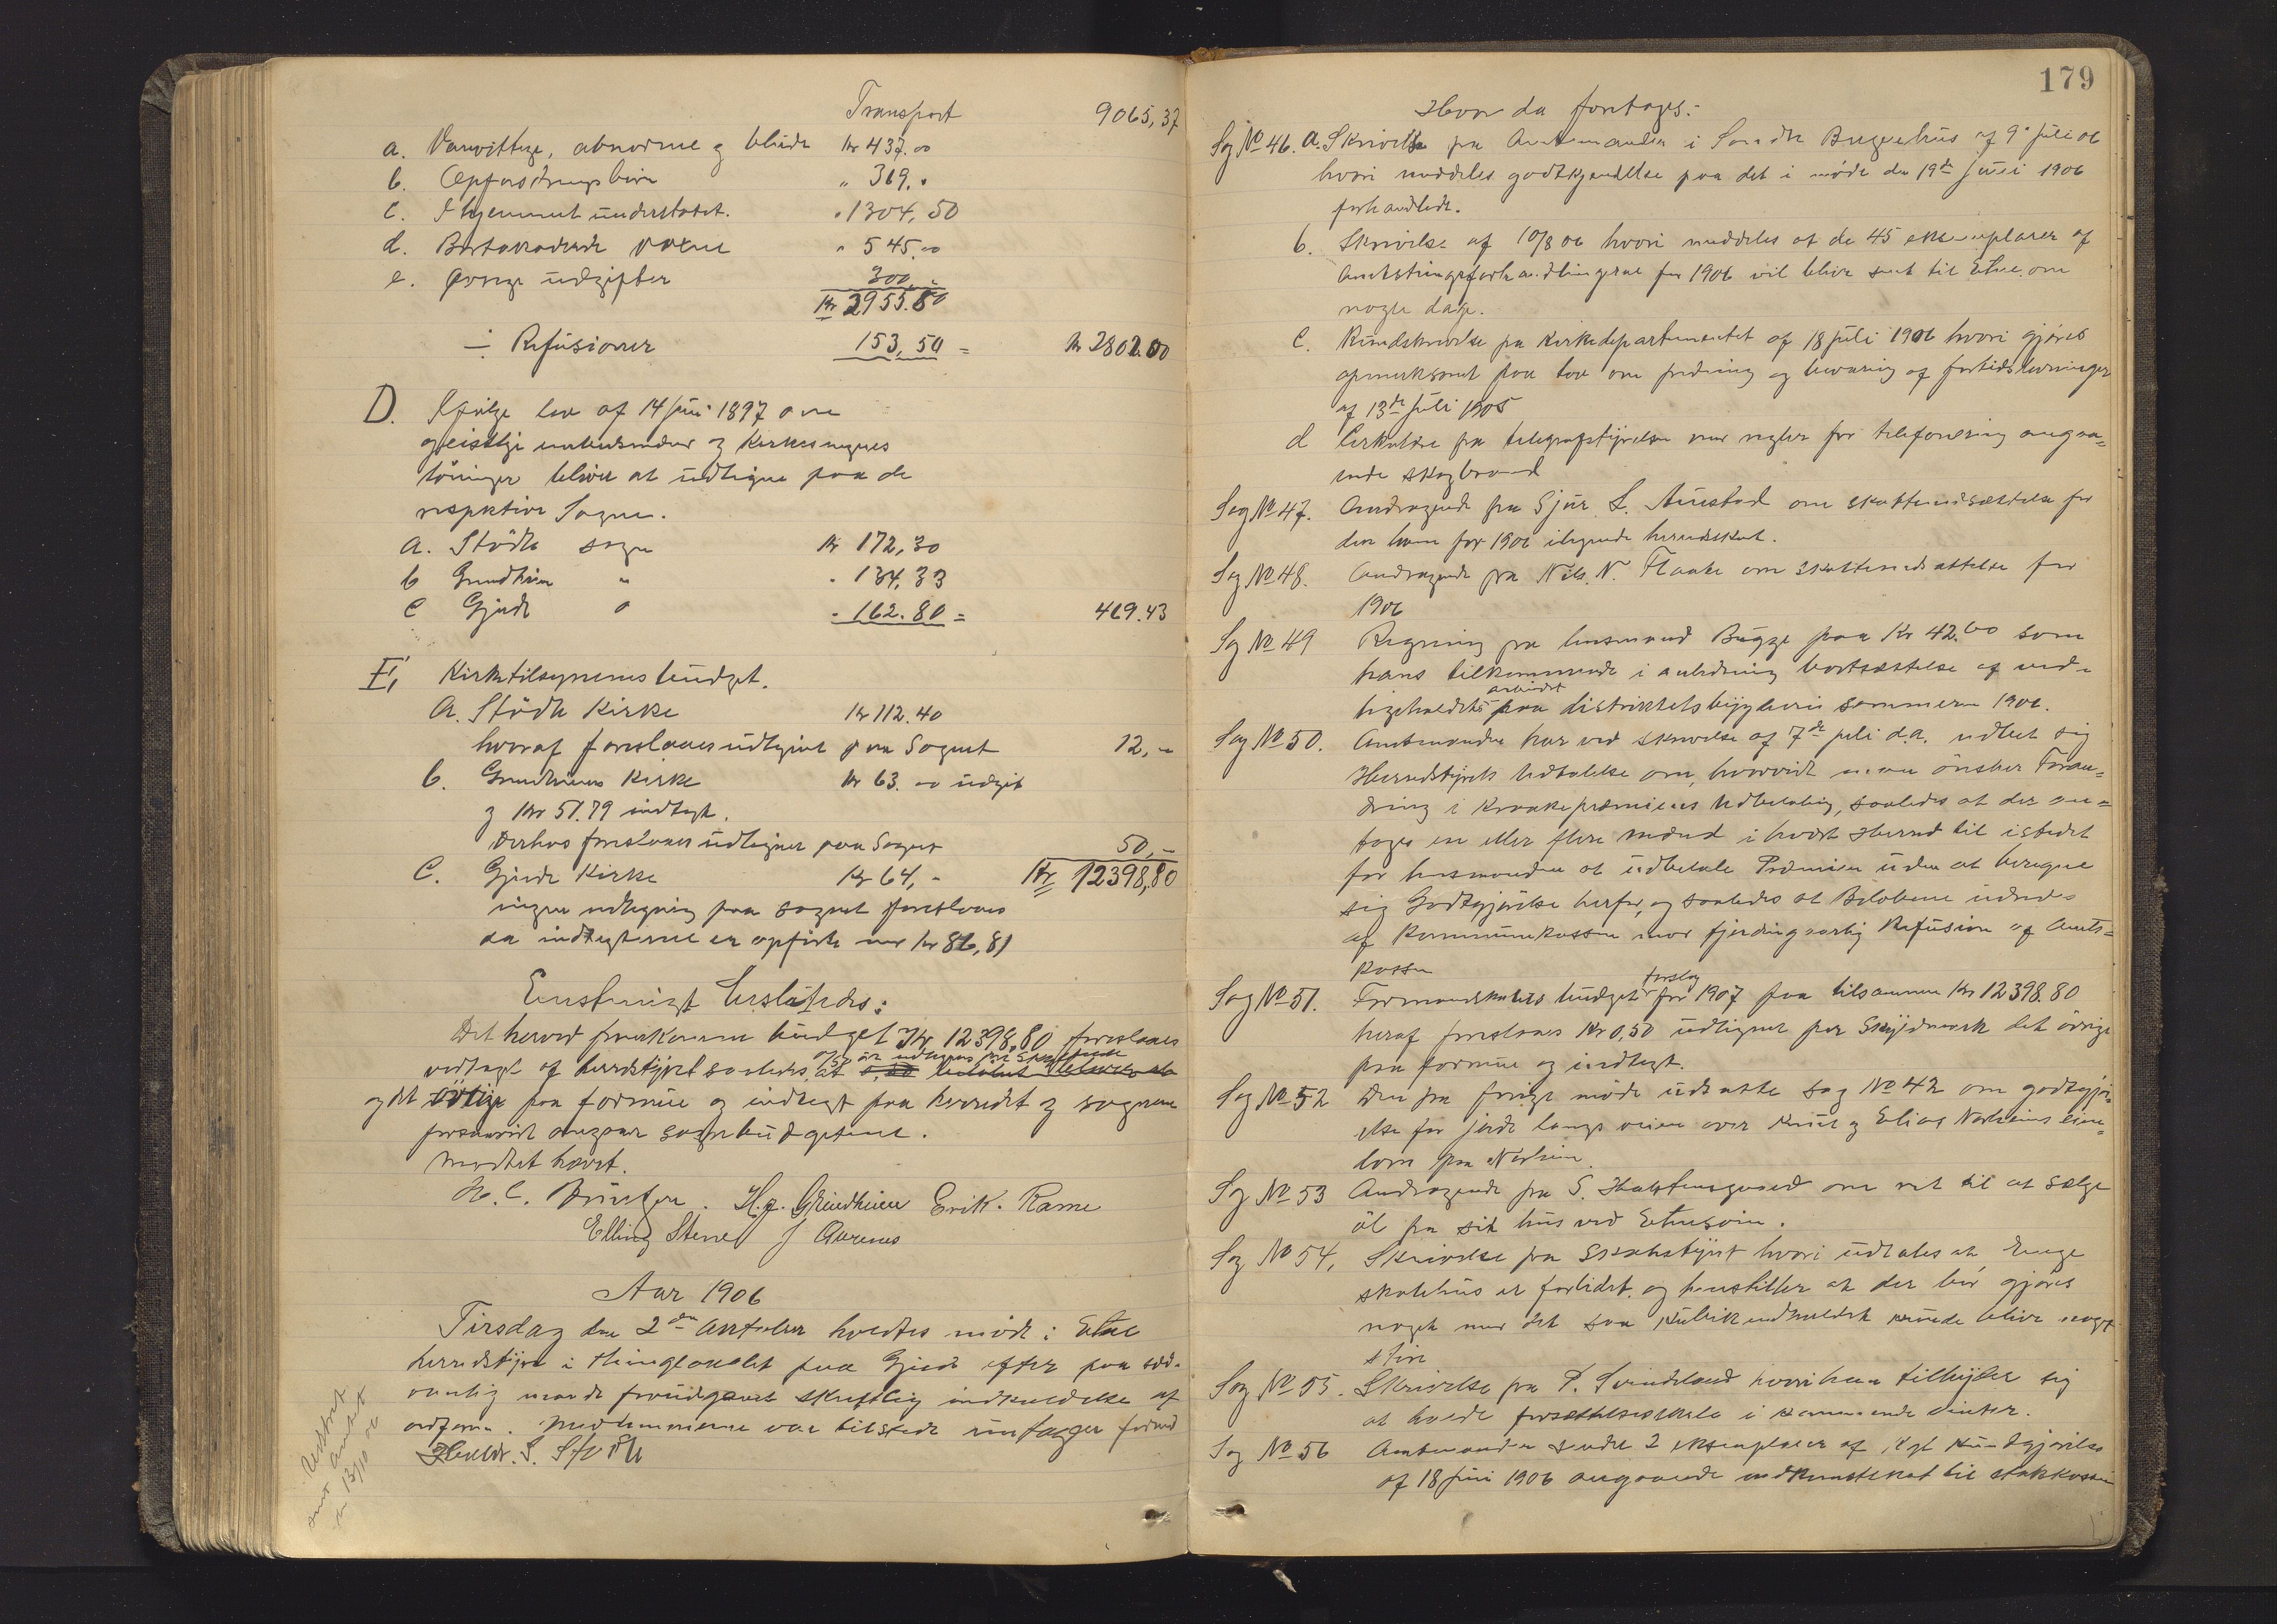 Transport 9065,37
a. Vanvittige, abnorme og blinde Kr 437.00
b. Opfostringsbørn " 369. "
c. I hjemmet understøttet. " 1304,50
d. Bortakorderede voxne " 545.00
e. Øvrige udgifter 300,-
Kr 2955.50
÷ Refusioner 153,50 = Kr 2802.00
D. Ifølge lov af 14 Juni 1897 om
geistlige embedsmænd og Kirkesangeres
lønninger bliver at udligne paa de
respektive Sogne.
a. Stødle sogn Kr 172,30
b Grindheim " " 134,33
c Gjerde " " 162.80 = 469.43
E, Kirketilsynenes budget.
a. Stødle Kirke Kr 112.40
hvoraf foreslaaes udlignet paa Sognet 12,-
b. Grindheims Kirke Kr 63.00 udgift
og Kr 51.79 indtægt.
Derhos foreslaaes udlignet paa Sognet 50,-
C. Gjerde Kirke Kr 64,- Kr 12398,80
ingen udligning paa sognet foreslaaes
da indtægterne er opført med kr 86,81
Enstemigt Besluttedes:
Det herved fremkomne budget Kr 12398,80 foreslaaes
vedtaget af herredstyret saaledes, at
og det øvrige paa formue og indtægt paa herredet og sognene
forsaavidt angaar sognebudgetterne.
Mødtet hævet.
H. C. H. J. Grindheim Erik. Rame
Elling Stene J Aarenes
Aar 1906
Tirsdag den 2den Oktober holdtes møde i Etne
herredstyre i thinglokalet paa Gjerde efter paa sæd-
vanlig maade forudgaaet skriftlig indkaldelse af
ordføren. Medlemmerne var tilstede undtagen formd
Haldr. S. Stødle
Udskrevet
sendt amtet
den 13/10 06
179
Hvor da foretoges:
Sag No 46. a. Skrivelse fra Amtmanden i Søndre Bergenhus af 9de juli 06
hvori meddeles godkjendelse paa det i møde den 19de Juni 1906
forhandlede.
b. Skrivelse af 10/8 06 hvori meddeles at de 45 eksemplarer af
Amtstingsforhandlingerne for 1906 vil blive sendt til Etne om
nogle dage.
c. Rundskrivelse fra Kirkedepartementet af 18 juli 1906 hvori gjøres
opmerksomt paa lov om fredning og bevaring af fortidslevninger
af 13de Juli 1905
d Cirkulære fra telegrafstyrelsen med regler for telefonering angaa-
ende skogbrand
Sag No 47. Andragende fra Sjur L. Austad om skattenedsættelse for
den ham for 1906 ilignede herredsskat.
Sag No 48. Andragende fra Nils N. Flaate om skattenedsættelse for
1906
Sag No 49 Regning fra lensmand Bugge paa Kr 42.60 som
hans tilkommende i anledning bortsættelse af ved-
ligeholdets arbeidet paa distriktets bygdevei sommeren 1906.
Sag No 50. Amtmanden har ved skrivelse af 7de juli d.a. udbedt sig
Herredstyrets Udtalelse om, hvorvidt man ønsker Foran-
dring i Kraakepræmiens Udbetaling, saaledes at der an-
tages en eller flere mænd i hvert Herred til istedet
for lensmanden at udbetale Præmien uden at beregne
sig Godtgjørelse herfor, og saaledes at Beløbene udredes
af Kommunekassen mod fjerdingaarlig Refusion af Amts-
kassen
Sag No 51. Formandskabets budget forslag for 1907 paa tilsammen Kr 12398.80
heraf foreslaaes Kr 0,50 udlignet per Skyldmark det øvrige
paa formue og indtægt.
Sag No 52 Den fra forrige møde udsatte sag No 42 om godtgjø-
else for jorde langs veien over Knut og Elias Nerheims eien-
dom paa Nerheim.
Sag No 53 Andragende fra S. Halstensgaard om ret til at sælge
øl fra sit hus ved Etnesøien.
Sag No 54, Skrivelse fra Skolestyret hvori udtales at Enge
skolehus er forlidet og henstiller at der bør gjøres
noget med det saa Kubikindholdet kunde blive noget
større
Sag No 55. Skrivelse fra P. Svindland hvori han tilbyder sig
at holde forsættelsesskole i kommende vinter.
Sag No 56 Amtmanden sendt 2 eksemplarer af Kgl Kundgjørelse
af 18 Juni 1906 angaaende indkomstskat til statskassen